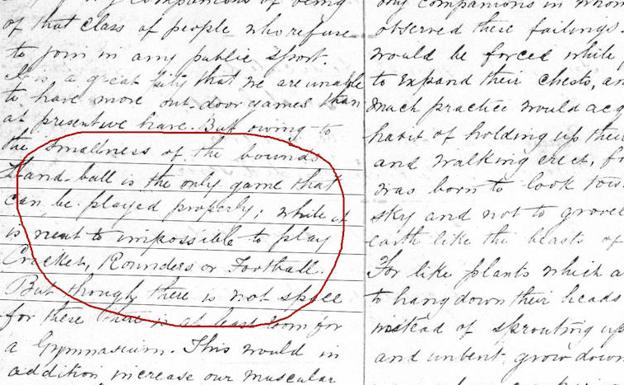 of that class of people who refuse
to join in any public sport.
It is a great pity that we are unable
to have more out-door games than
at present we have. But owing to
the smallness of the bounds
Hand-ball is the only game that
can be played properly; while it
is next to impossible to play
Cricket, Rounders or Football.
But though there is not space
for these there is at least room for
a Gymnasium. This would in
addition increase our muscular
only companions in whom
observed these failings.
would be forced while
to expand their chests, an
much practice would acq
habit of holding up their
and walking erect, f
was born to look tow
sky and not to grovel
earth like the beasts of
For like plants which a
to hang down their heads
instead of sprouting up
and unbent grow down